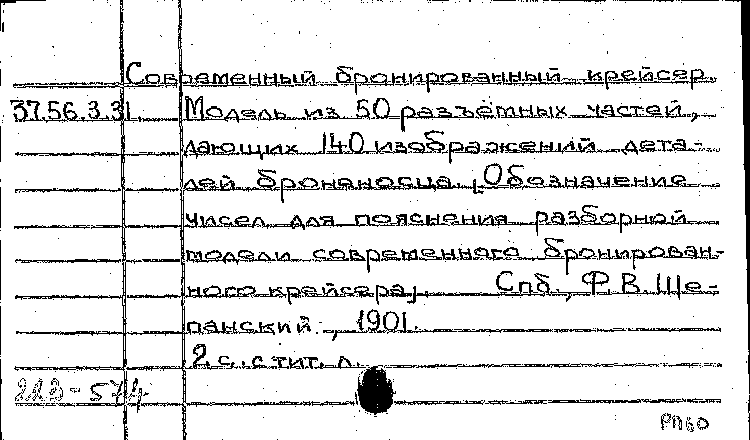 Современный бронированный крейсер.
37.56.3.31. Модель из 50 разъёмных частей,
дающих 140 изображений дета-
лей броненосца. [Обозначение
чисел для пояснения разборной
модели современного бронирован-
ного крейсера]. Спб., Ф.В. Ще-
панский, 1901.
2 с. с тит. л.
213-574
РПБО